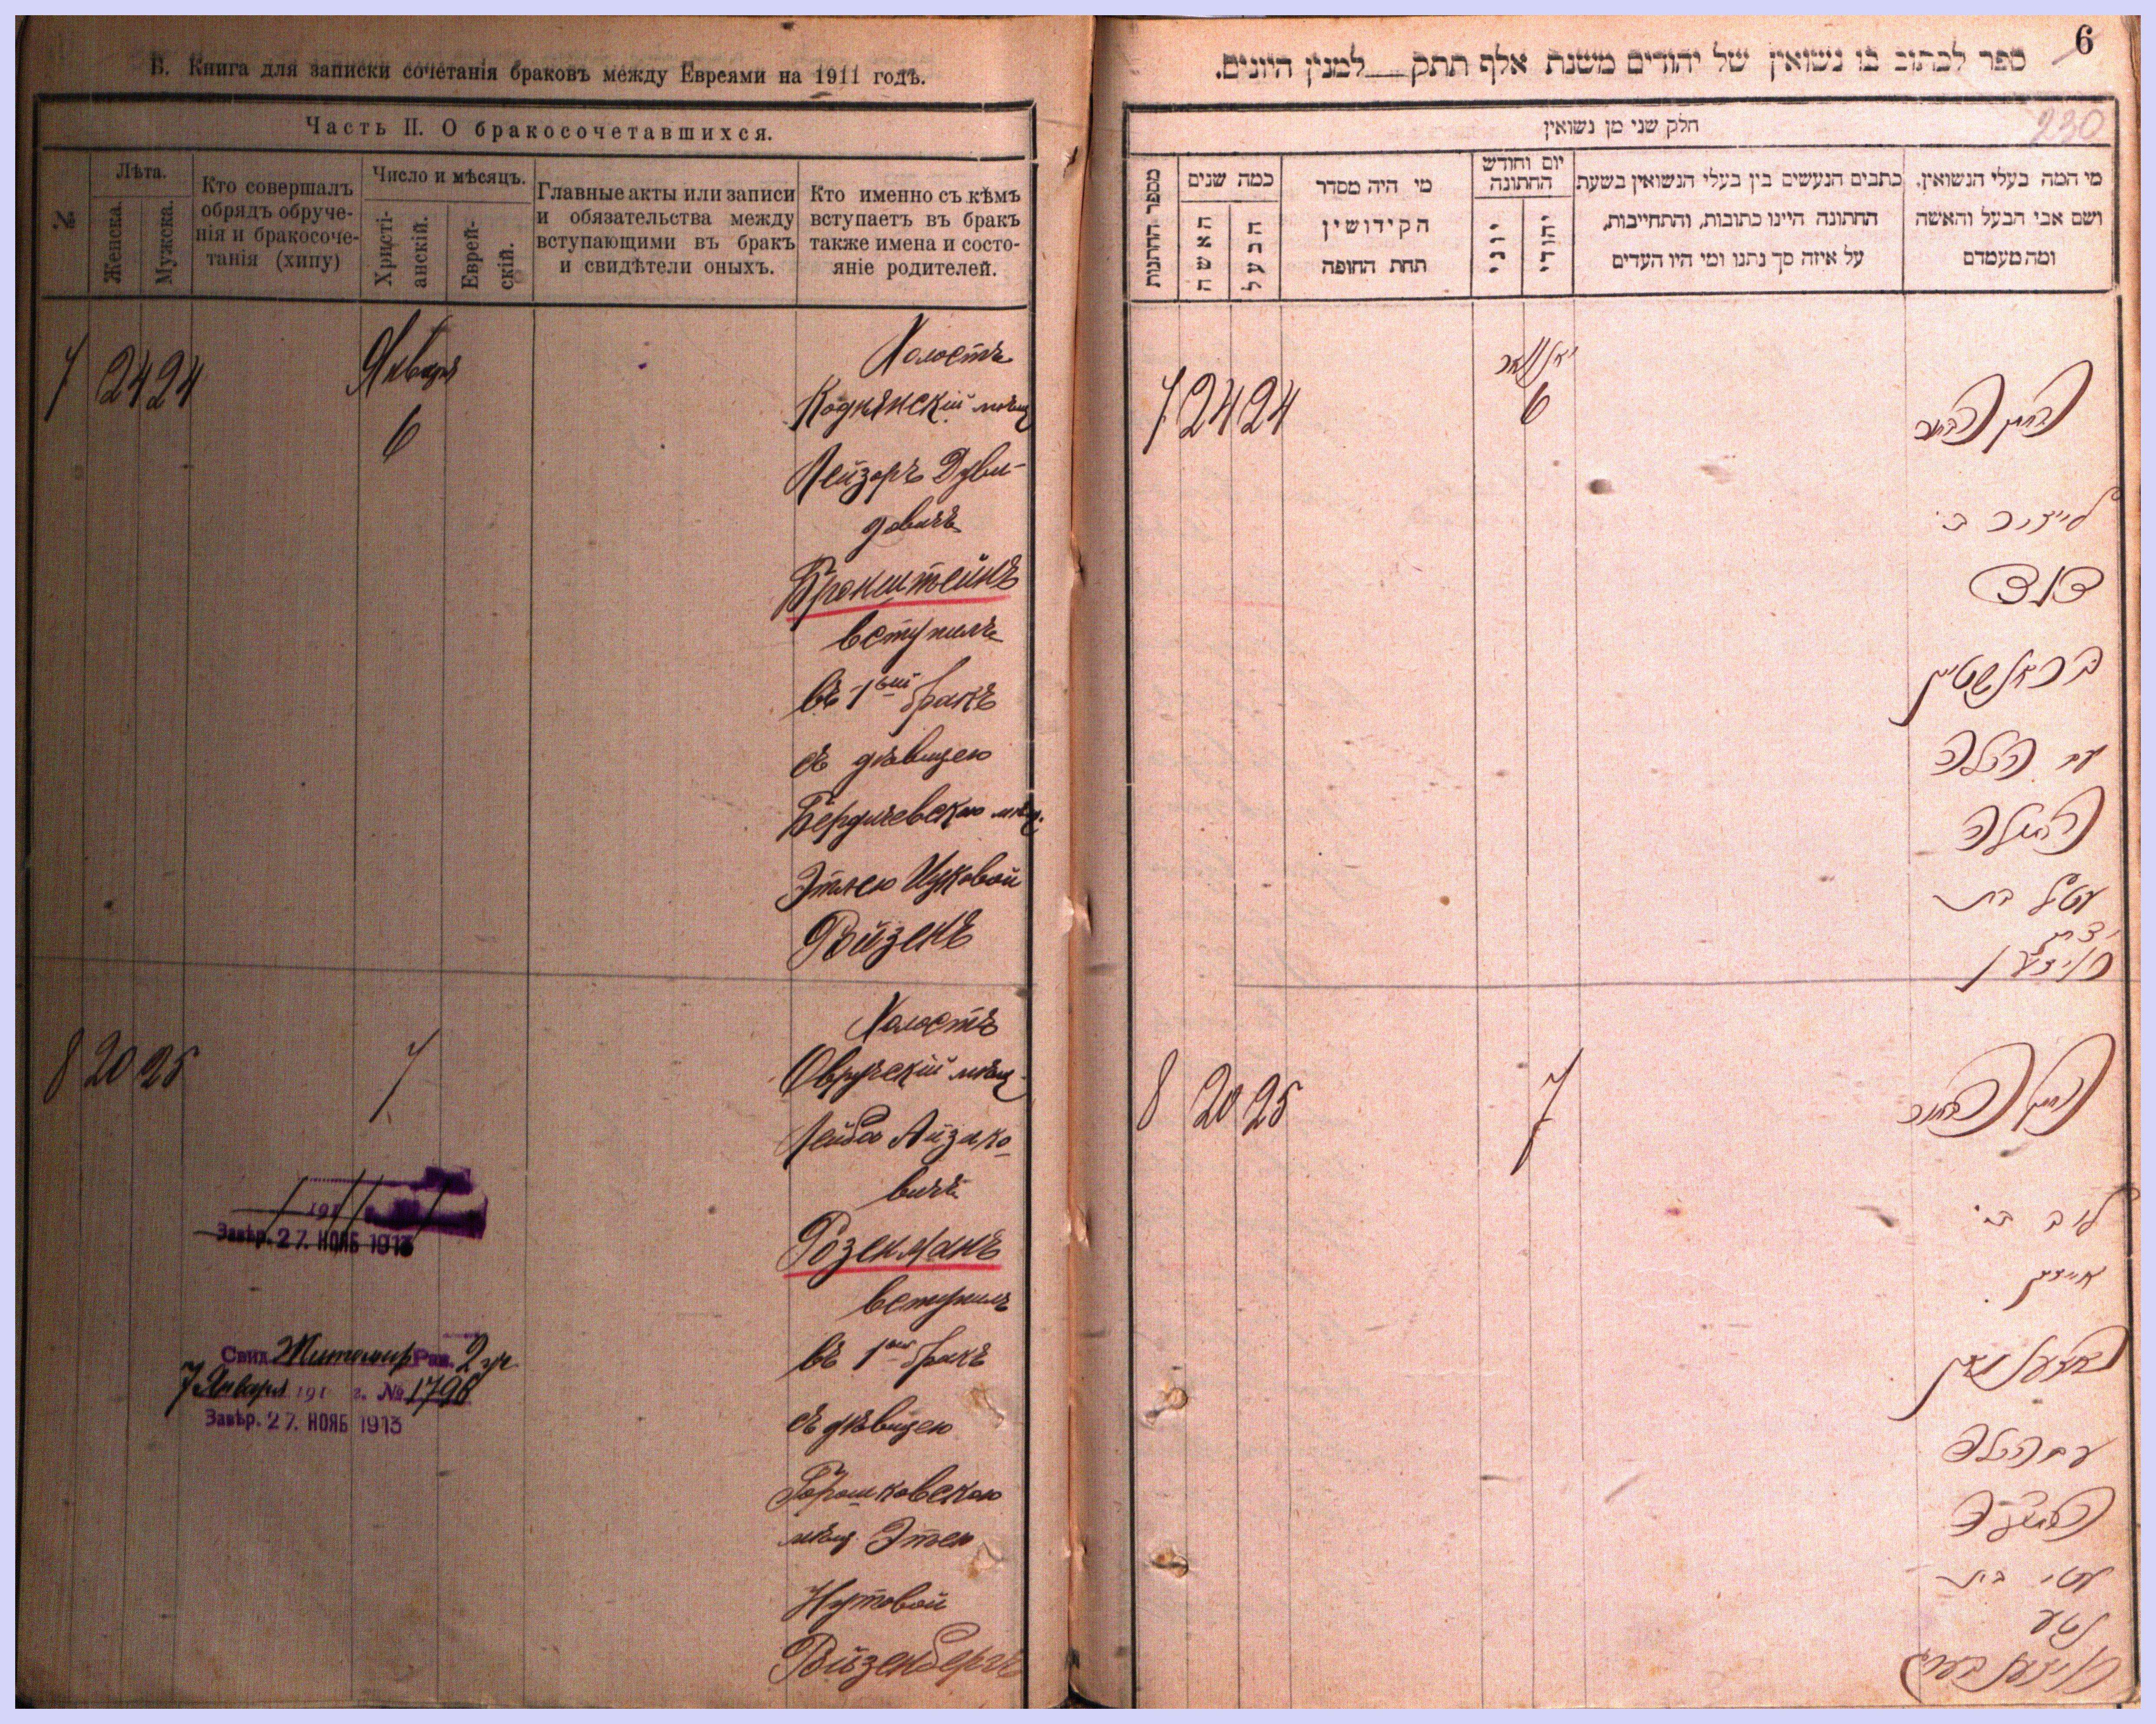 В. Книга для записки сочетанія браковъ между Евреями на 1911 годъ.
Часть II. О бракосочетавшихся.
№
Лѣта.
Женска.
Мужска.
Кто совершалъ
обрядъ обруче-
нія и бракосоче-
танія (хипу)
Число и мѣсяцъ.
Христі-
анскій.
Еврей-
скій.
Главные акты или записи
и обязательства между
вступающими въ бракъ
и свидѣтели оныхъ.
Кто именно съ кѣмъ
вступаетъ въ бракъ
также имена и состо-
яніе родителей.
7 24 24
Января
6
Холостъ
Коднянскій мѣщ
Лейзоръ Дуви-
довичъ
Бронштейнъ
вступилъ
въ 1ый бракъ
съ дѣвицею
Бердичевскою мѣщ.
Этлею Ицковой
Ройзенъ
8 20 25
7
Холостъ
Овручскій мѣщ
Лейба Айзико
вичъ
Розенманъ
вступилъ
въ 1ый бракъ
съ дѣвицею
Горошковскою
мѣщ. Этею
Нутовой
Ройзенбергъ
191
Завѣр. 27. НОЯБ 1913
Свид. Житомир Рав. 2 уч
7 Января 191 г. № 1796
Завѣр. 27. НОЯБ 1913
6
ספר לכתוב בו נשואין של יהודים משנת אלף תתק למנין היונים.
230
חלק שני מן נשואין
מספר החתנות
כמה שנים
האשה
הבעל
מי היה מסדר
הקידושין
תחת החופה
יום וחודש
החתונה
יוני
יהודי
כתבים הנעשים בין בעלי הנשואין בשעת
החתונה היינו כתובות, והתחייבות,
על איזה סך נתנו ומי היו העדים
מי המה בעלי הנשואין,
ושם אבי הבעל והאשה
ומה מעמדם
7 24 24
יאנואר
6
החתן הבחור
לייזיר ב'
דוד
בראנשטיין
עם הכלה
הבתולה
עטיל בת
יצחק
רויזען
8 20 25
7
החתן הבחור
ליב ב'
אייזיק
ראזענמאן
עם הכלה
הבתולה
עטי בת
נטע
רויזענבערג